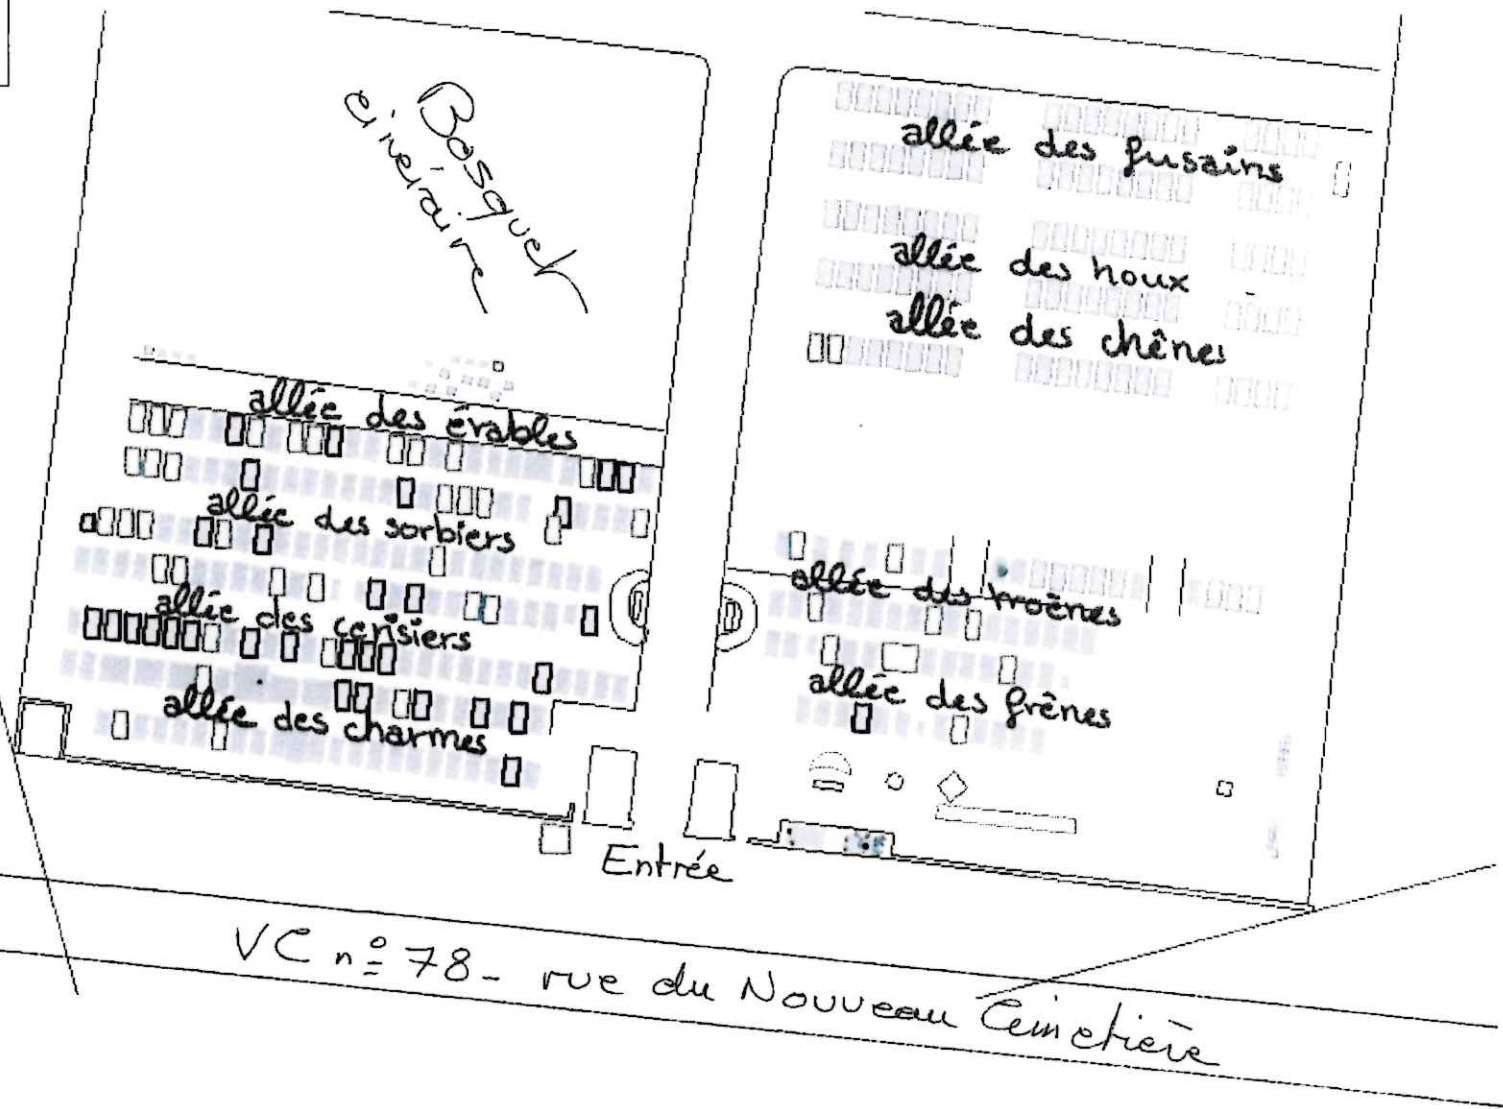 Bosquet
cinéraire
allée des érables
allée des sorbiers
allée des cerisiers
allée des charmes
allée des fusains
allée des houx
allée des chênes
allée des troènes
allée des frênes
Entrée
VC n° 78 - rue du Nouveau Cimetière